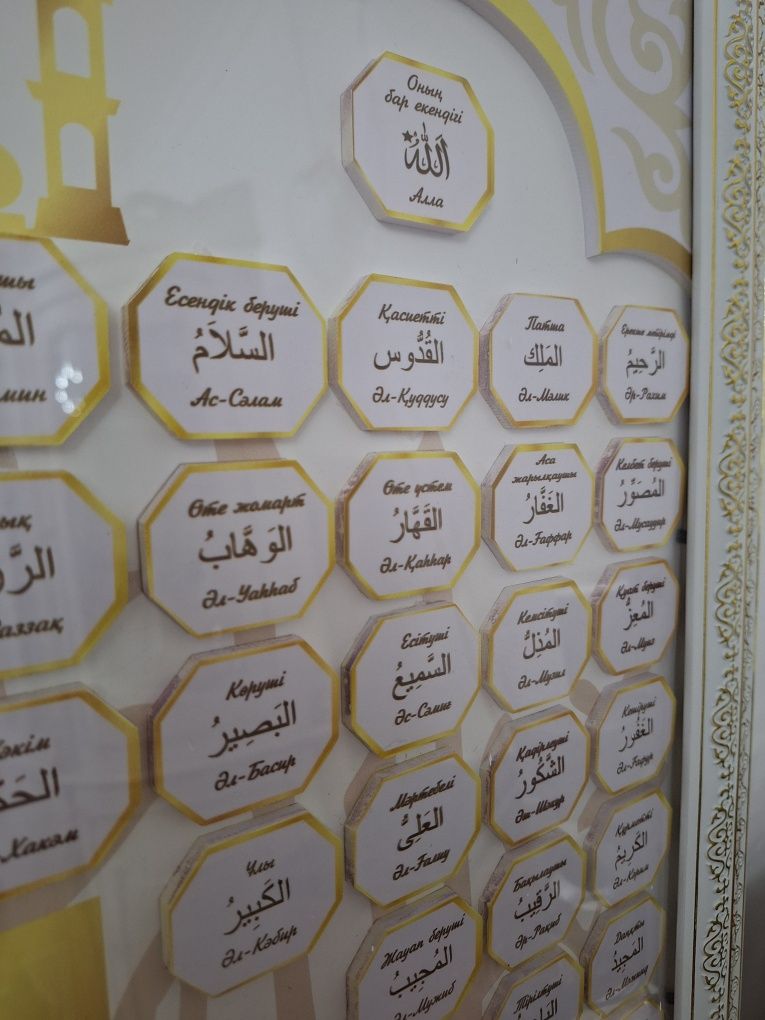 Оның
бар екендігі
اللّٰهُ
Алла
Есендік беруші
السَّلَامُ
Ас-Сәлам
Қасиетті
القُدُّوس
Әл-Қуддусу
Патша
المَلِك
Әл-Мәлик
Ерекше мейірімді
الرَّحِيمُ
Әр-Рахим
Өте жомарт
الوَهَّابُ
Әл-Уаһһаб
Өте үстем
القَهَّارُ
Әл-Қаһһар
Аса
жарылқаушы
الغَفَّارُ
Әл-Ғаффар
Келбет беруші
المُصَوِّرُ
Әл-Мусаууир
Көруші
البَصِيرُ
Әл-Басир
Есітуші
السَّمِيعُ
Әс-Сәмиғ
Кемсітуші
المُذِلُّ
Әл-Музил
Қуат беруші
المُعِزُّ
Әл-Муғиз
Ұлы
الكَبِيرُ
Әл-Кәбир
Мәртебелі
العَلِىُّ
Әл-Ғалиу
Қадірлеуші
الشَّكُورُ
Әш-Шәкур
Кешіруші
الغَفُورُ
Әл-Ғафур
Жауап беруші
المُجِيبُ
Әл-Мужиб
Бақылаушы
الرَّقِيبُ
Әр-Рақиб
Құрметті
الكَرِيمُ
Әл-Кәрим
Тірілтуші
Даңқты
المَجِيدُ